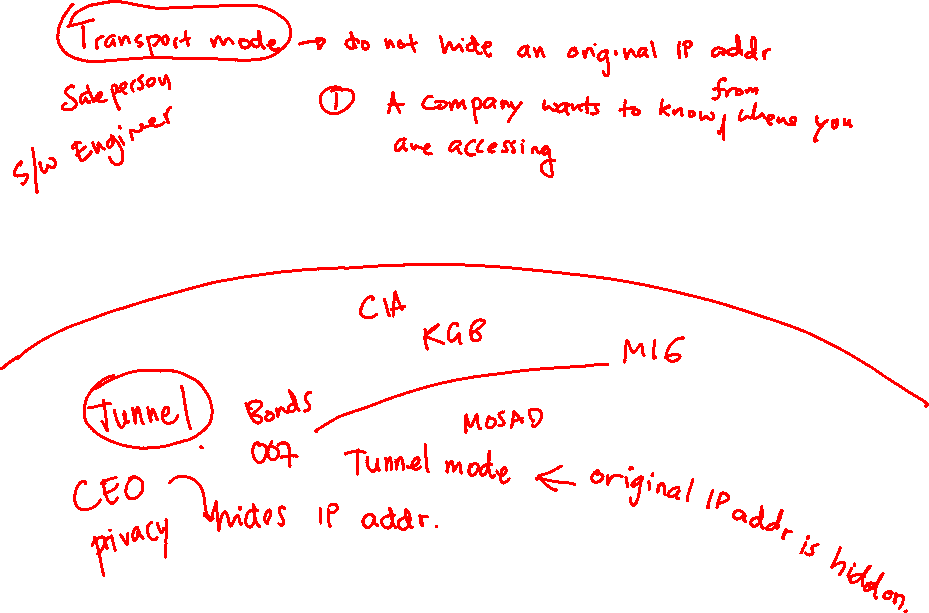 Transport mode → do not hide an original IP addr
Saleperson
S/W Engineer
① A company wants to know from where you
are accessing
CIA
KGB
MI6
Tunnel
Bonds
007
MOSAD
Tunnel mode ← original IP addr is hidden.
CEO
privacy
hides IP addr.